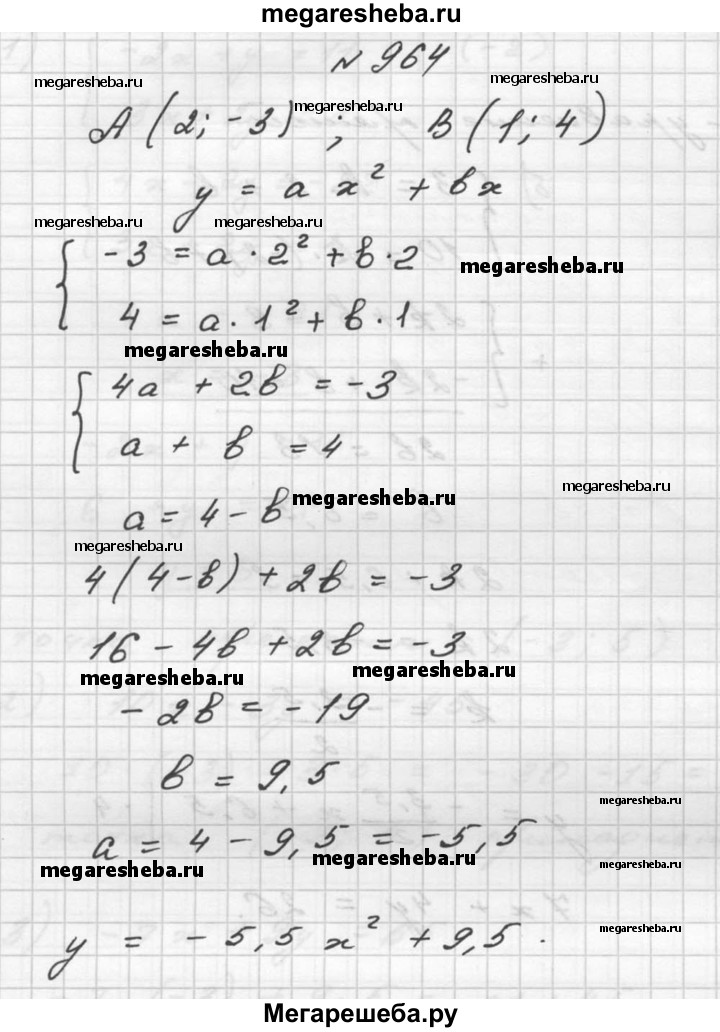 megaresheba.ru
№ 964
megaresheba.ru megaresheba.ru
megaresheba.ru
A (2; -3) ; B (1; 4)
y = a x² + bx
megaresheba.ru megaresheba.ru
-3 = a · 2² + b · 2
megaresheba.ru
4 = a · 1² + b · 1
megaresheba.ru
4a + 2b = -3
a + b = 4
megaresheba.ru
a = 4 - b
megaresheba.ru
megaresheba.ru
4(4-b) + 2b = -3
16 - 4b + 2b = -3
megaresheba.ru megaresheba.ru
- 2b = -19
b = 9,5
megaresheba.ru
a = 4 - 9,5 = -5,5
megaresheba.ru megaresheba.ru
megaresheba.ru
y = -5,5 x² + 9,5 .
megaresheba.ru
Мегарешеба.ру